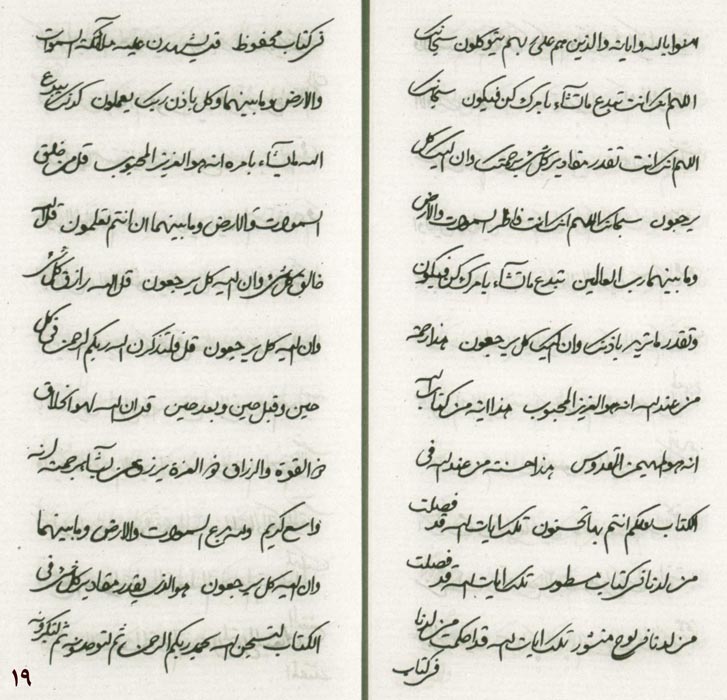 امنوا بالله واياته والذين هم على ربهم يتوكلون سبحانك
اللهم انك انت تبدع ماتشاء بامرك كن فيكون سبحانك
اللهم انك انت تقدر مقادير كل شئ برحمتك وان اليك كل
يرجعون سبحانك اللهم انك انت فاطر السموات والارض
وما بينهما رب العالمين تبدع ماتشاء بامرك كن فيكون
وتقدر ماتريد باذنك وان اليك كل يرجعون هذا رحمة
من عند الله انه هو العزيز المحبوب هذا اية من كتاب الله
انه هو المهيمن القدوس هذا حسنة من عند الله فى
الكتاب لعلكم انتم بها تحسنون تلك ايات الله قد فصلت
من لدنا فى كتاب مسطور تلك ايات الله قد فصلت
من لدنا فى لوح منشور تلك ايات الله قد احكمت من لدنا
فى كتاب
فى كتاب محفوظ قد يشهدن عليه ملائكة السموات
والارض وما بينهما وكل باذن ربك يعملون كذلك يبدع
الله مايشاء بامره انه هو العزيز المحبوب قل من خلق
السموات والارض وما بينهما ان انتم تعلمون قل الله
خالق كل شئ وان اليه كل يرجعون قل الله رازق كل شئ
وان اليه كل يرجعون قل فلتذكرن الله ربكم الرحمن فى كل
حين وقبل حين وبعد حين قد ان الله لهو الخلاق
ذو القوة والرزاق ذو العزة يرزق من يشاء برحمته انه
واسع كريم ولله برع السموات والارض وما بينهما
وان اليه كل يرجعون هو الذى يقدر مقادير كل شئ فى
الكتاب لتسبحن الله بحمد ربكم الرحمن ثم لتوحدونه ثم لتكبرونه
١٩